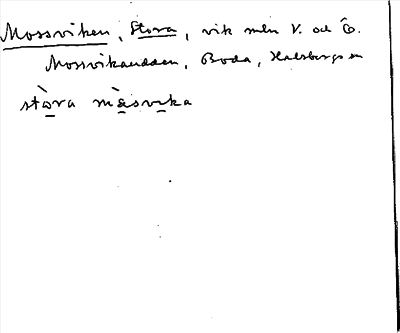 Mossviken, Stora, vik mln V. och Ö.
Mossvikaudden, Boda, Halsbergs sn
stò̱ra mò̱svi̱ka